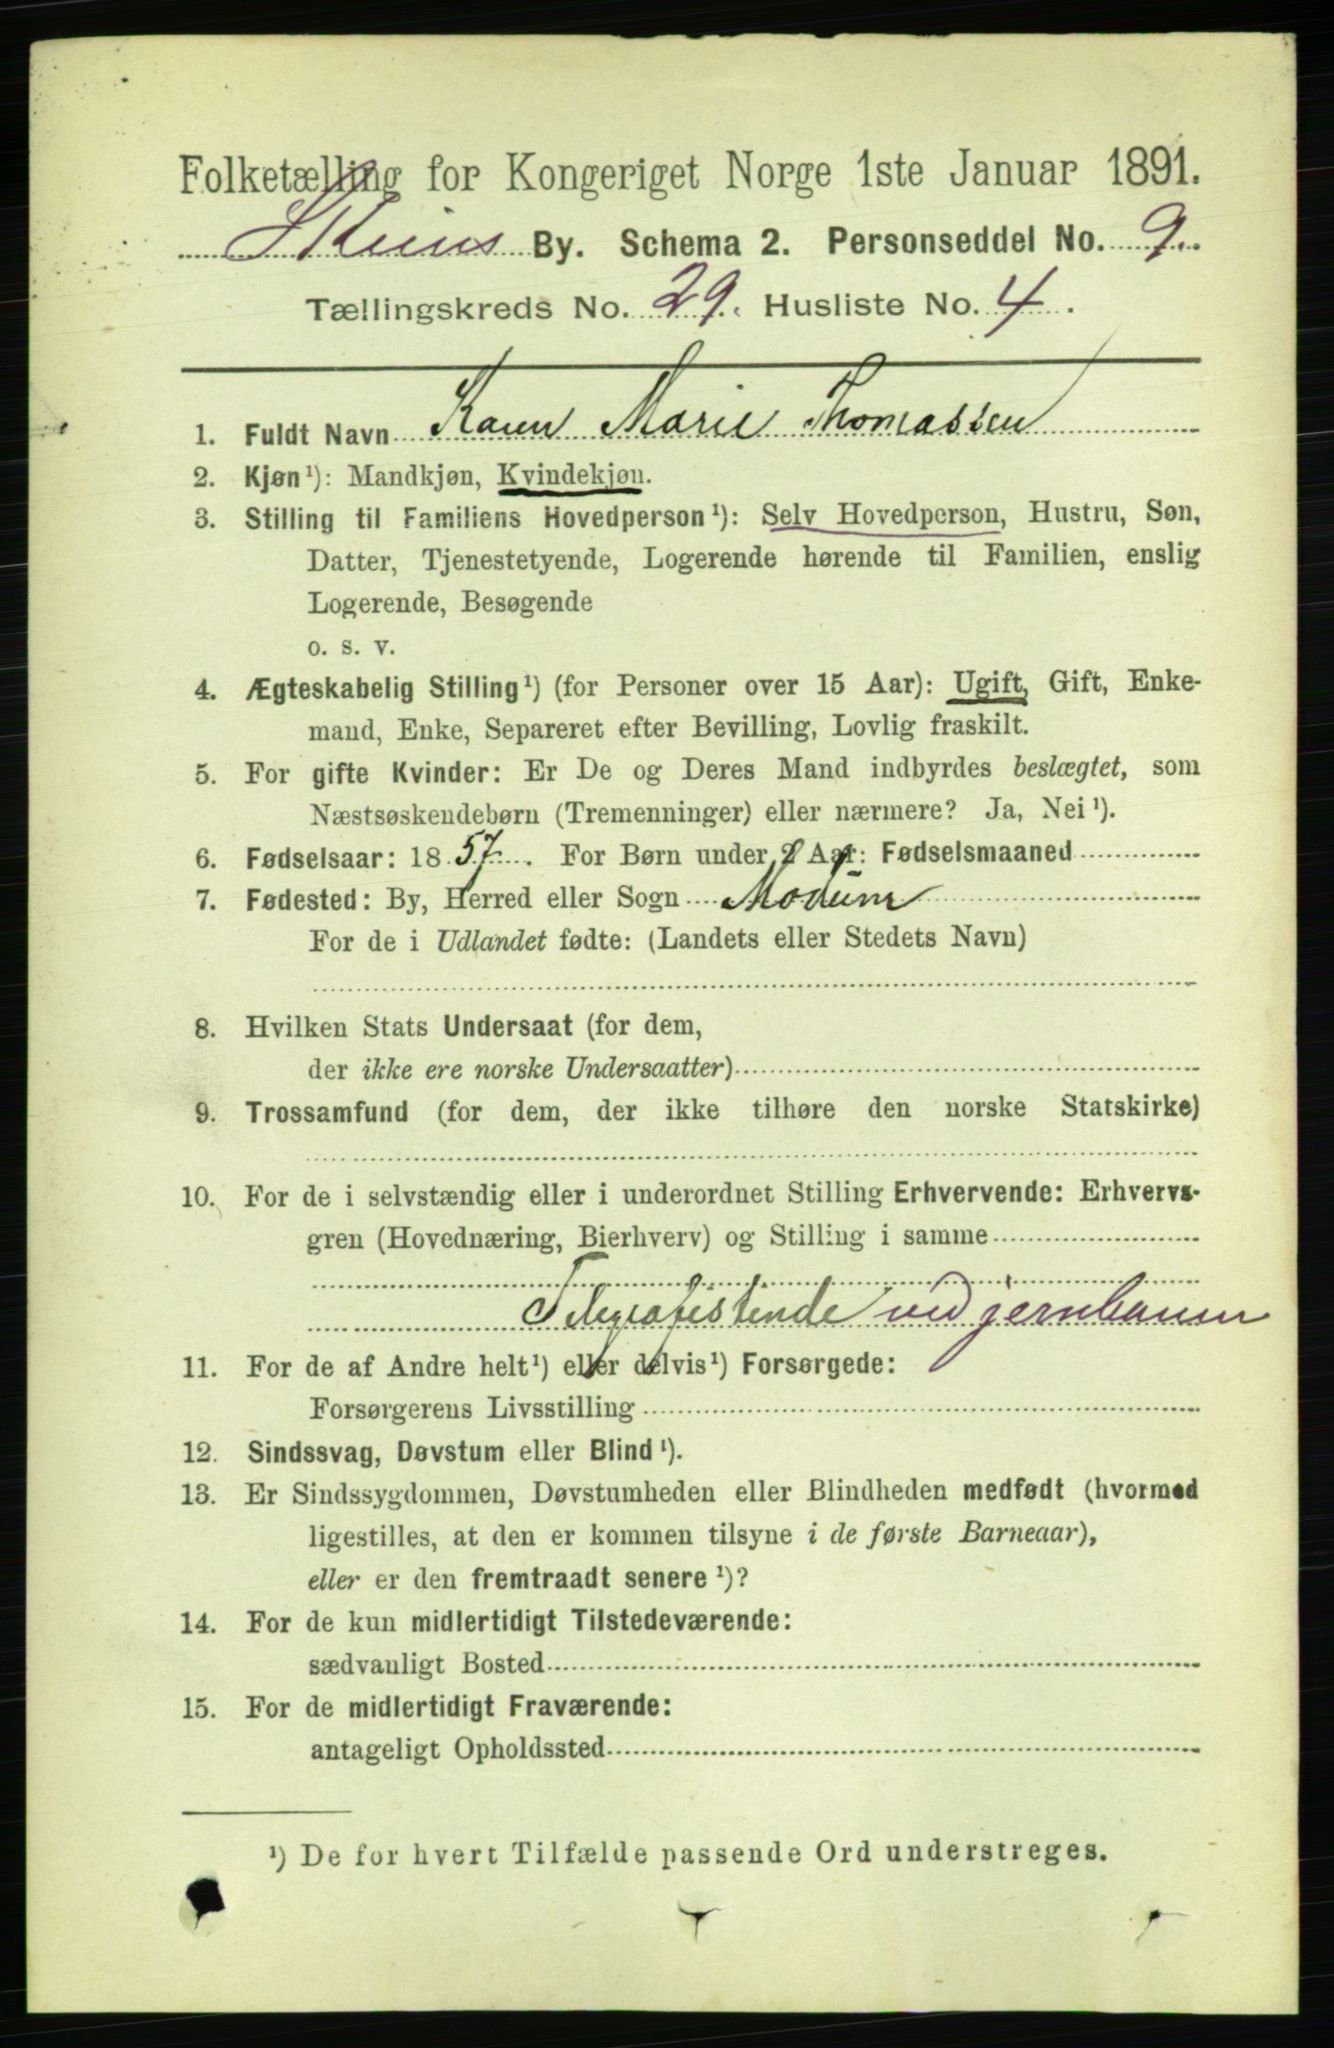 Folketælling for Kongeriget Norge 1ste Januar 1891.
Skiens By. Schema 2. Personseddel No. 9.
Tællingskreds No. 29. Husliste No. 4.
1. Fuldt Navn Karen Marie Thomassen
2. Kjøn¹): Mandkjøn, Kvindekjøn.
3. Stilling til Familiens Hovedperson¹): Selv Hovedperson, Hustru, Søn,
Datter, Tjenestetyende, Logerende hørende til Familien, enslig
Logerende, Besøgende
o. s. v.
4. Ægteskabelig Stilling¹) (for Personer over 15 Aar): Ugift, Gift, Enke-
mand, Enke, Separeret efter Bevilling, Lovlig fraskilt.
5. For gifte Kvinder: Er De og Deres Mand indbyrdes beslægtet, som
Næstsøskendebørn (Tremenninger) eller nærmere? Ja, Nei¹).
6. Fødselsaar: 1857. For Børn under 2 Aar: Fødselsmaaned
7. Fødested: By, Herred eller Sogn Modum
For de i Udlandet fødte: (Landets eller Stedets Navn)
8. Hvilken Stats Undersaat (for dem,
der ikke ere norske Undersaatter)
9. Trossamfund (for dem, der ikke tilhøre den norske Statskirke)
10. For de i selvstændig eller i underordnet Stilling Erhvervende: Erhvervs-
gren (Hovednæring, Bierhverv) og Stilling i samme
Telegrafistinde ved jernbanen
11. For de af Andre helt¹) eller delvis¹) Forsørgede:
Forsørgerens Livsstilling
12. Sindssvag, Døvstum eller Blind¹).
13. Er Sindssygdommen, Døvstumheden eller Blindheden medfødt (hvormed
ligestilles, at den er kommen tilsyne i de første Barneaar),
eller er den fremtraadt senere¹)?
14. For de kun midlertidigt Tilstedeværende:
sædvanligt Bosted
15. For de midlertidigt Fraværende:
antageligt Opholdssted
¹) De for hvert Tilfælde passende Ord understreges.